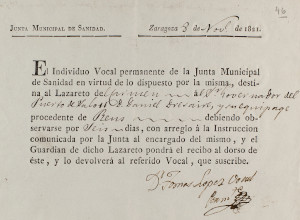 96
JUNTA MUNICIPAL DE SANIDAD. Zaragoza 3 de Nov.e de 1821.
El Individuo Vocal permanente de la Junta Municipal
de Sanidad en virtud de lo dispuesto por la misma, destina
al Lazareto de al Sr. Governador del
Puerto de D. Daniel y su equipage
procedente de Reus debiendo observarse
por dias, con arreglo á la Instruccion
comunicada por la Junta al encargado del mismo, y el
Guardian de dicho Lazareto pondrá el recibo al dorso de
éste, y lo devolverá al referido Vocal, que suscribe.
D.n Tomas Lopez Vocal